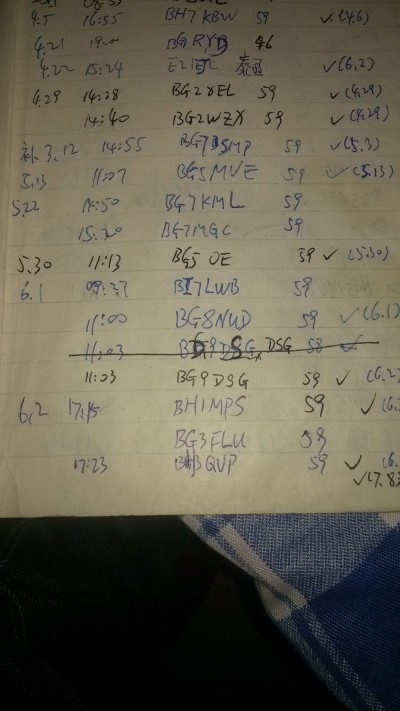 4.5 16:55 BH7KBW 59 ✓(4.6)
4.21 BG8RYD 46
4.22 15:24 泰国 ✓(6.2)
4.29 14:28 BG2XEL 59 ✓(4.29)
14:40 BG2WZX 59 ✓(4.29)
补 3.12 14:55 59 ✓(5.3)
5.13 11:07 BG5MVE 59 ✓(5.13)
5.22 14:50 BG7KML 59
15:20 BG7MGC 59
5.30 11:13 BG5OE 59 ✓(5.30)
6.1 09:27 BI7LWB 59
11:00 BG8NUD 59 ✓(6.1)
11:03 DSG 58 ✓
11:03 BG9DSG 59 ✓(6.2)
6.2 17:15 BH1MPS 59 ✓(6.
BG3FLU 59
17:23 BH3QVP 59 ✓(6.
✓(7.8)